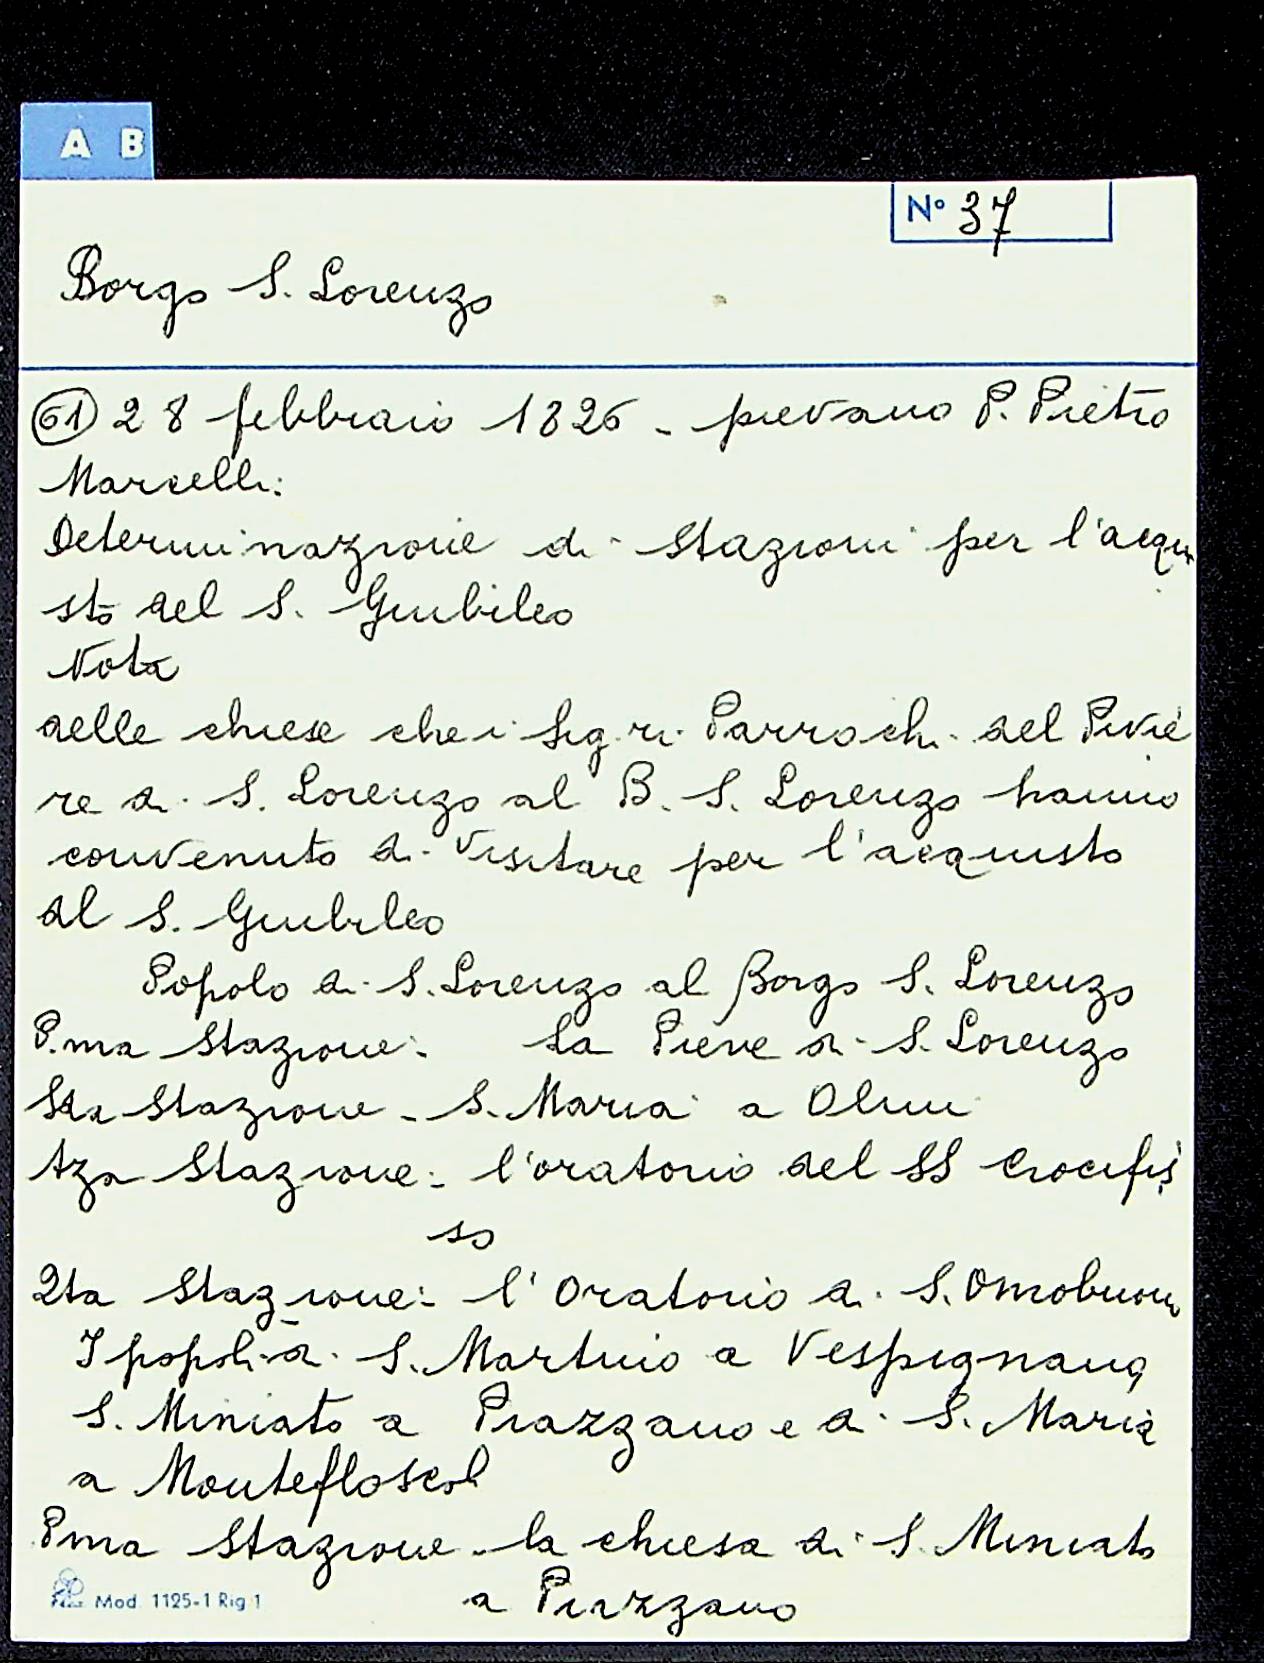 A B
Nº 37
Borgo S. Lorenzo
61) 28 febbraio 1826 - pievano P. Pietro
Marcelli:
Determinazione di Stazioni per l'acqui
sto del S. Giubileo
Nota
delle chiese che i Sig.ri Parrochi del Pivie
re di S. Lorenzo al B. S. Lorenzo hanno
convenuto di visitare per l'acquisto
dl S. Giubileo
Popolo di S. Lorenzo al Borgo S. Lorenzo
P.ma Stazione: La Pieve di S. Lorenzo
Sda Stazione - S. Maria a Olmi
tza Stazione: l'oratorio del SS Crocifis
so
Qta Stazione: l'Oratorio di S. Omobuono
I popoli di S. Martino a Vespignano,
S. Miniato a Piazzano e di S. Maria
a Montefloscoli
Pma Stazione - la chiesa di S. Miniato
a Piazzano
Mod. 1125-1 Rig 1